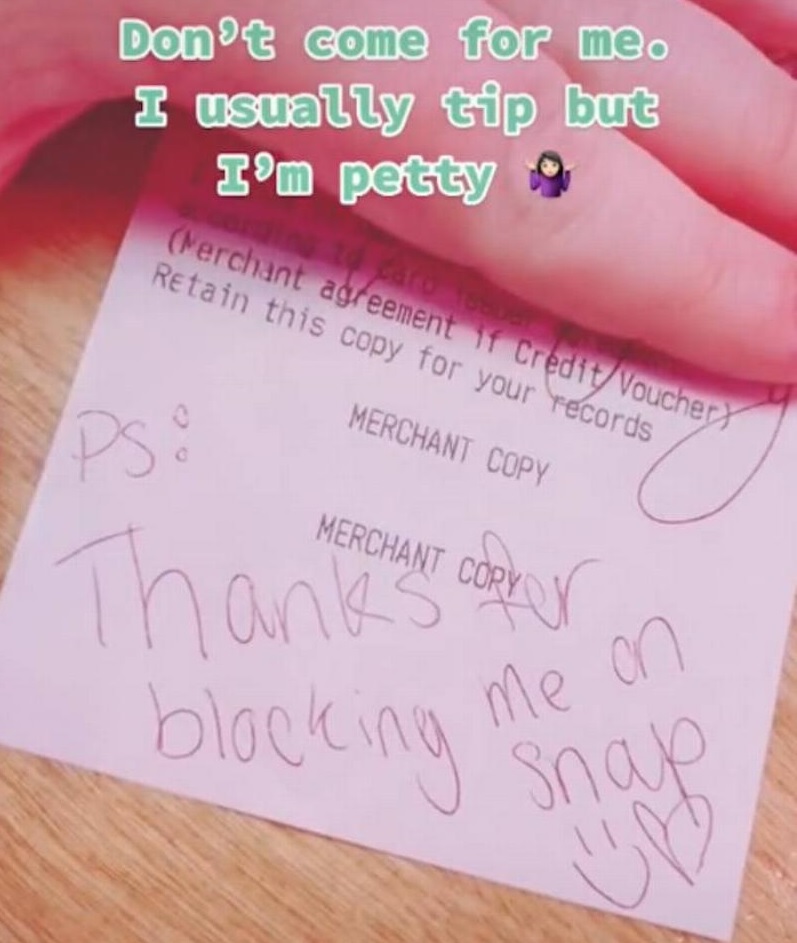 Don't come for me.
I usually tip but
I'm petty 🤷🏻‍♀️
(Merchant agreement if Credit Voucher)
Retain this copy for your records
PS:
MERCHANT COPY
MERCHANT COPY
Thanks for
blocking me on
snap